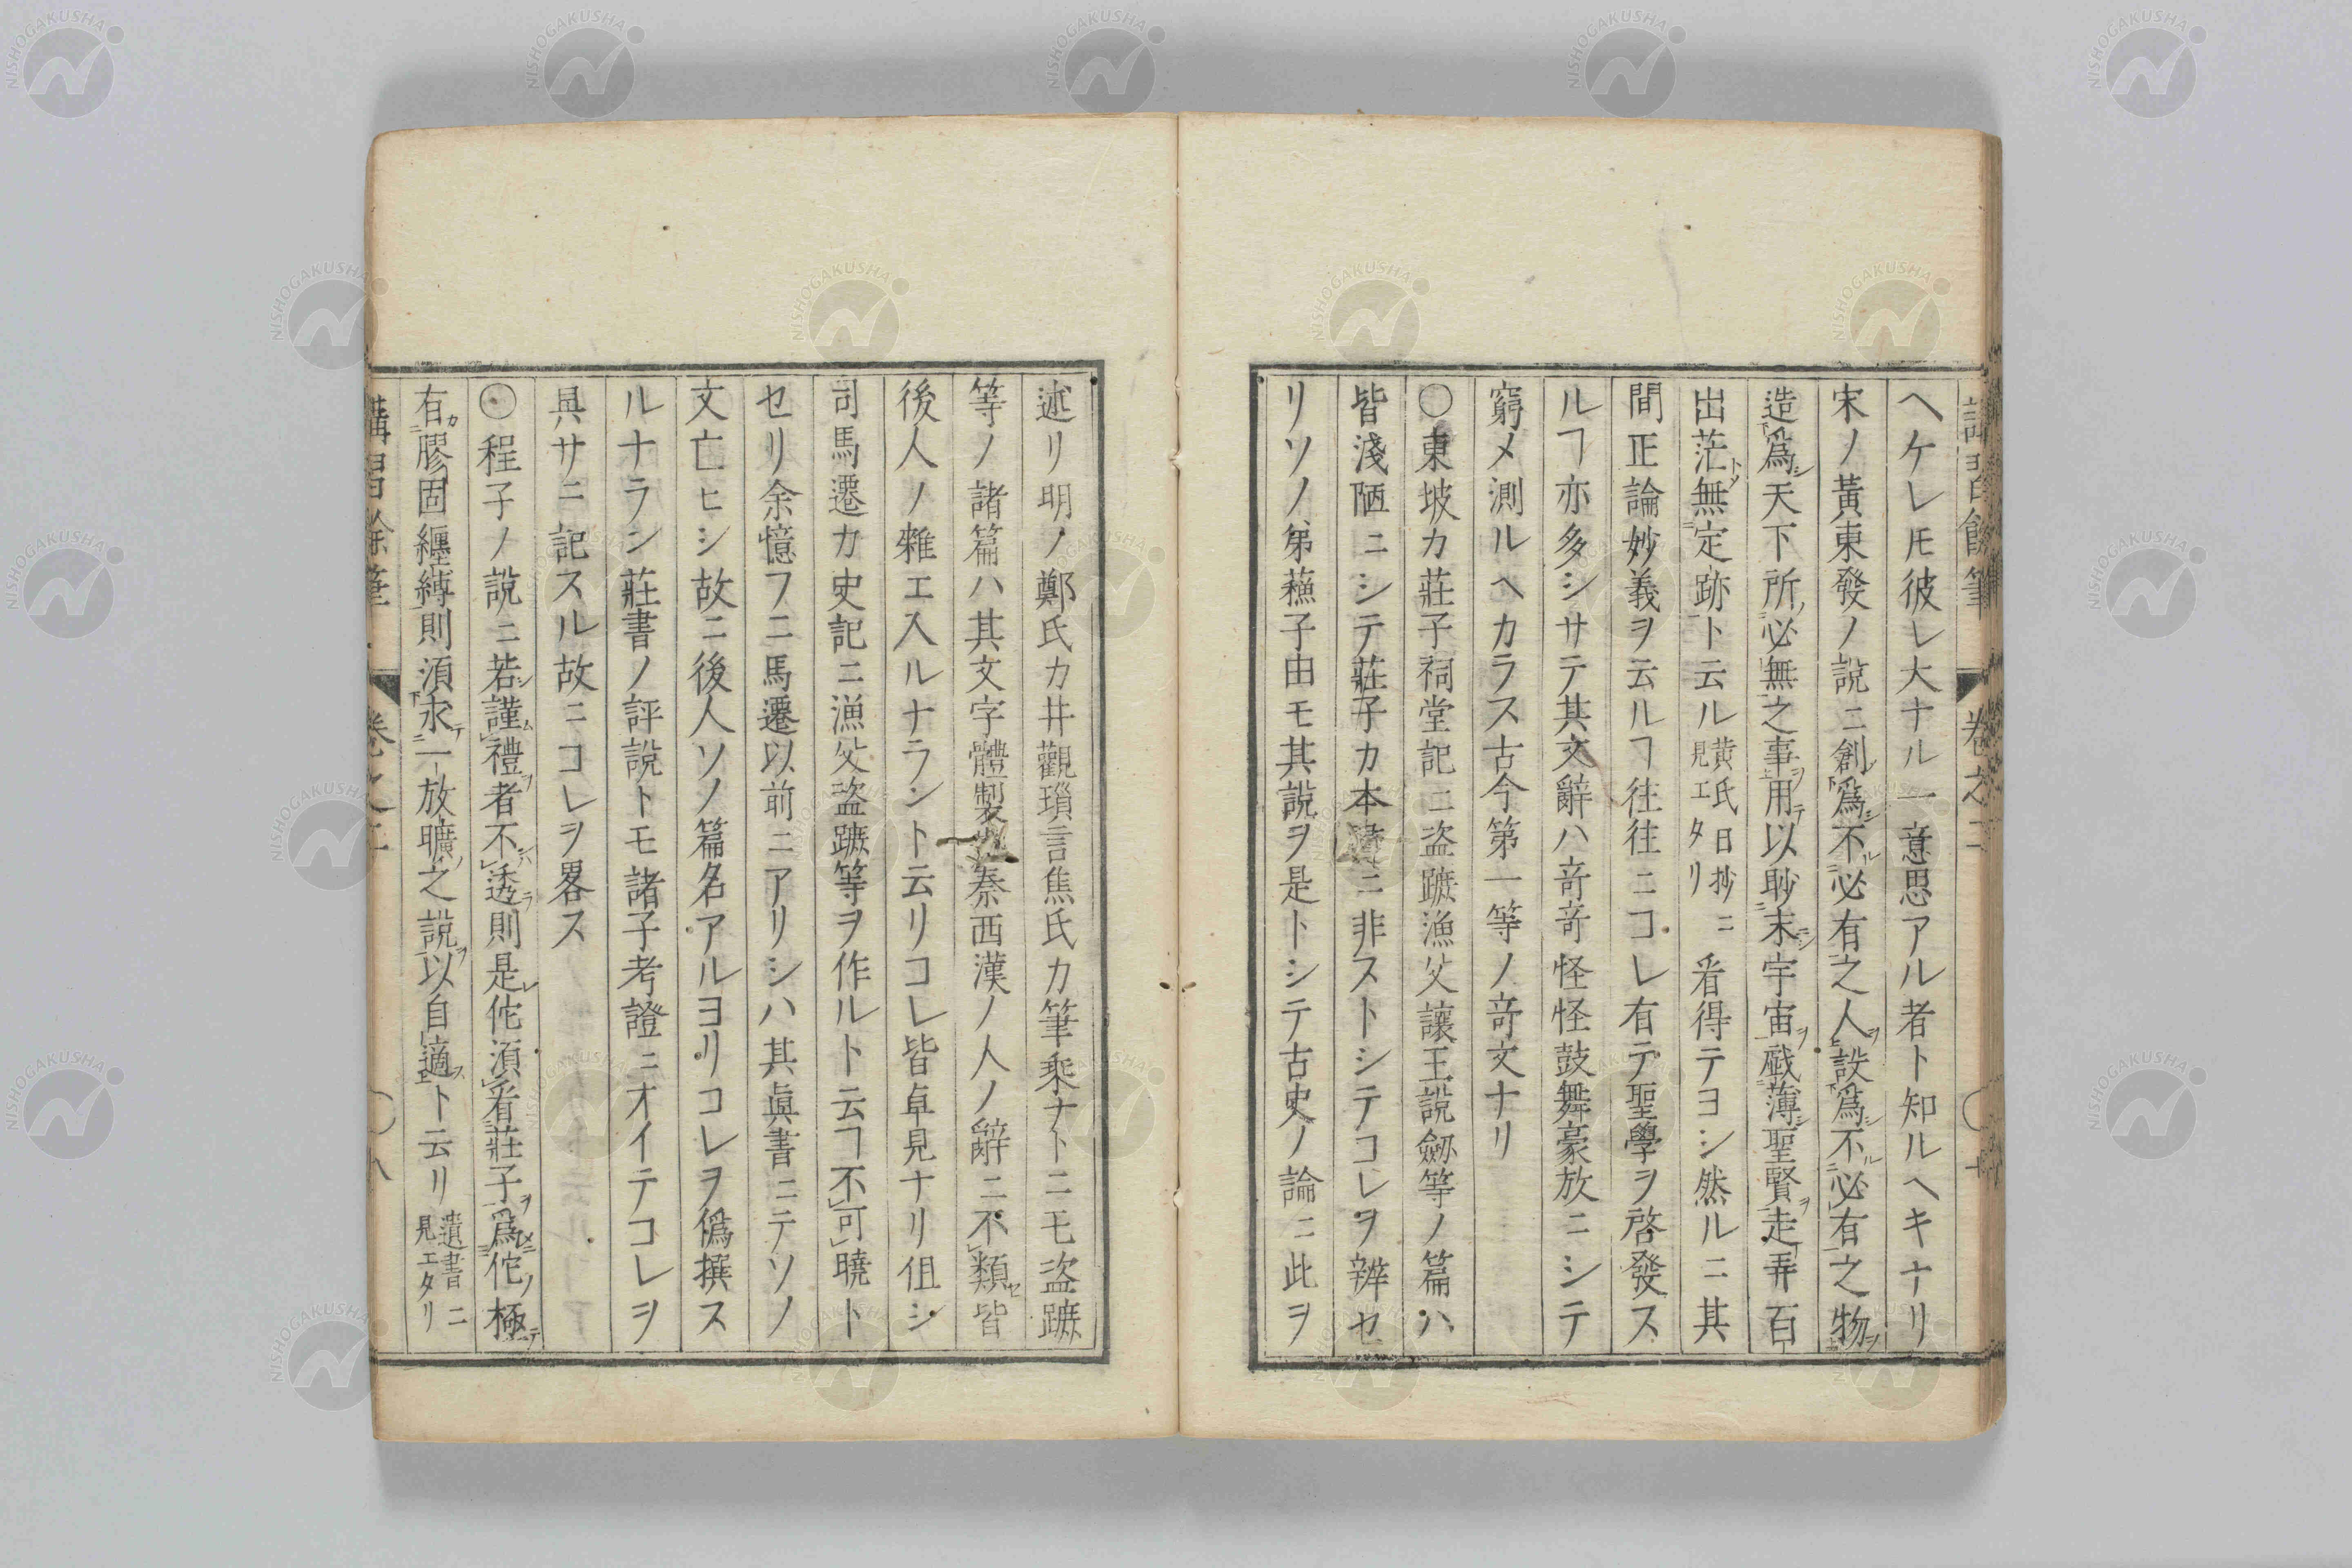 ヘケレㇳモ彼レ大ナル一意思アル者ト知ルヘキナリ
宋ノ黃東發ノ說ニ創爲不必有之人設爲不必有之物
造爲天下所必無之事用以眇末宇宙戲薄聖賢走弄百
出茫無定跡ト云ル黃氏日抄ニ見エタリ看得テヨシ然ルニ其
間正論妙義ヲ云ルヿ往往ニコレ有テ聖學ヲ啓發ス
ルヿ亦多シサテ其文辭ハ竒竒怪怪鼓舞豪放ニシテ
窮メ測ルヘカラス古今第一等ノ竒文ナリ
〇東坡カ莊子祠堂記ニ盗蹠漁父讓王說劒等ノ篇ハ
皆淺陋ニシテ莊子カ本書ニ非ストシテコレヲ辨セ
リソノ弟蘓子由モ其說ヲ是トシテ古史ノ論ニ此ヲ
述リ明ノ鄭氏カ井觀瑣言焦氏カ筆乘ナトニモ盗蹠
等ノ諸篇ハ其文字體製秦西漢ノ人ノ辭ニ不類皆
後人ノ雜エ入ルナラント云リコレ皆卓見ナリ但シ
司馬遷カ史記ニ漁父盗蹠等ヲ作ルト云ヿ不可曉ト
セリ余憶フニ馬遷以前ニアリシハ其眞書ニテソノ
文亡ヒシ故ニ後人ソノ篇名アルヨリコレヲ僞撰ス
ルナラシ莊書ノ評說トモ諸子考證ニオイテコレヲ
具サニ記スル故ニコレヲ畧ス
〇程子ノ說ニ若謹禮者不透則是佗須看莊子爲佗極
有膠固纒縛則須求一放曠之說以自適ト云リ遺書ニ見エタリ
講習餘筆 卷之二 〇八
NISHOGAKUSHA